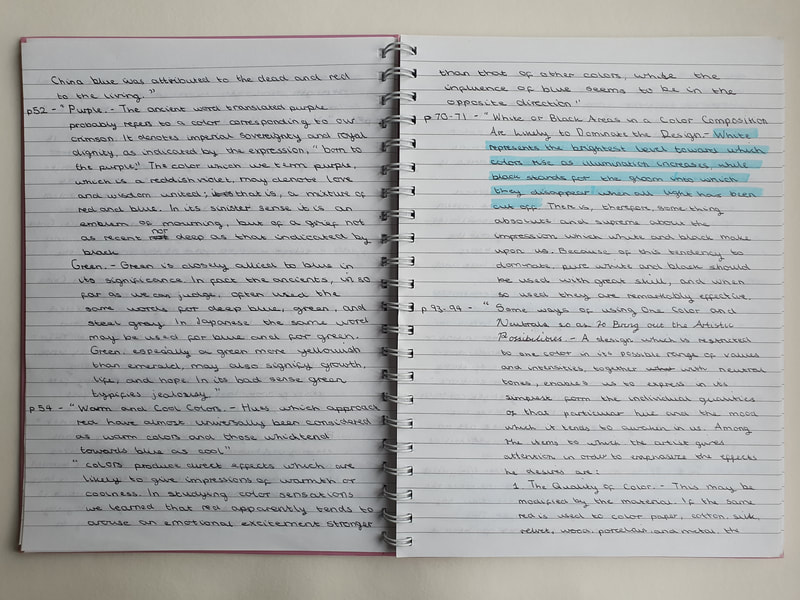 China blue was attributed to the dead and red
to the living."
p52 - "Purple. - The ancient word translated purple
probably refers to a color corresponding to our
crimson. It denotes imperial sovereignty and royal
dignity, as indicated by the expression, "born to
the purple." The color which we term purple,
which is a reddish violet, may denote love
and wisdom united; that is, a mixture of
red and blue. In its sinister sense it is an
emblem of mourning, but of a grief not
as recent nor deep as that indicated by
black
Green. - Green is closely allied to blue in
its significance. In fact the ancients, in so
far as we can judge, often used the
same words for deep blue, green, and
steal gray. In Japanese the same word
may be used for blue and for green.
Green, especially a green more yellowish
than emerald, may also signify growth,
life, and hope. In its bad sense green
typifies jealousy"
p54 - "Warm and Cool Colors. - Hues which approach
red have almost universally been considered
as warm colors and those which tend
towards blue as cool"
"colors produce direct effects which are
likely to give impressions of warmth or
coolness. In studying color sensations
we learned that red apparently tends to
arouse an emotional excitement stronger
than that of other colors, while the
influence of blue seems to be in the
opposite direction"
p.70-71 - "White or Black Areas in a Color Composition
Are likely to Dominate the Design. - White
represents the brightest level toward which
colors rise as illumination increases, while
black stands for the gloom into which
they disappear when all light has been
cut off. There is, therefore, something
absolute and supreme about the
impression which white and black make
upon us. Because of this tendency to
dominate, pure white and black should
be used with great skill, and when
so used they are remarkably effective.
p.93-94 - "Some ways of using One Color and
Neutrals so as To Bring out the Artistic
Possibilities - A design which is restricted
to one color in its possible range of values
and intensities, together with neutral
tones, enables us to express in its
simplest form the individual qualities
of that particular hue and the mood
which it tends to awaken in us. Among
the items to which the artist gives
attention in order to emphasize the effects
he desires are:
1 The Quality of Color. - This may be
modified by the material. If the same
red is used to color paper, cotton, silk,
velvet, wood, porcelain, and metal, the